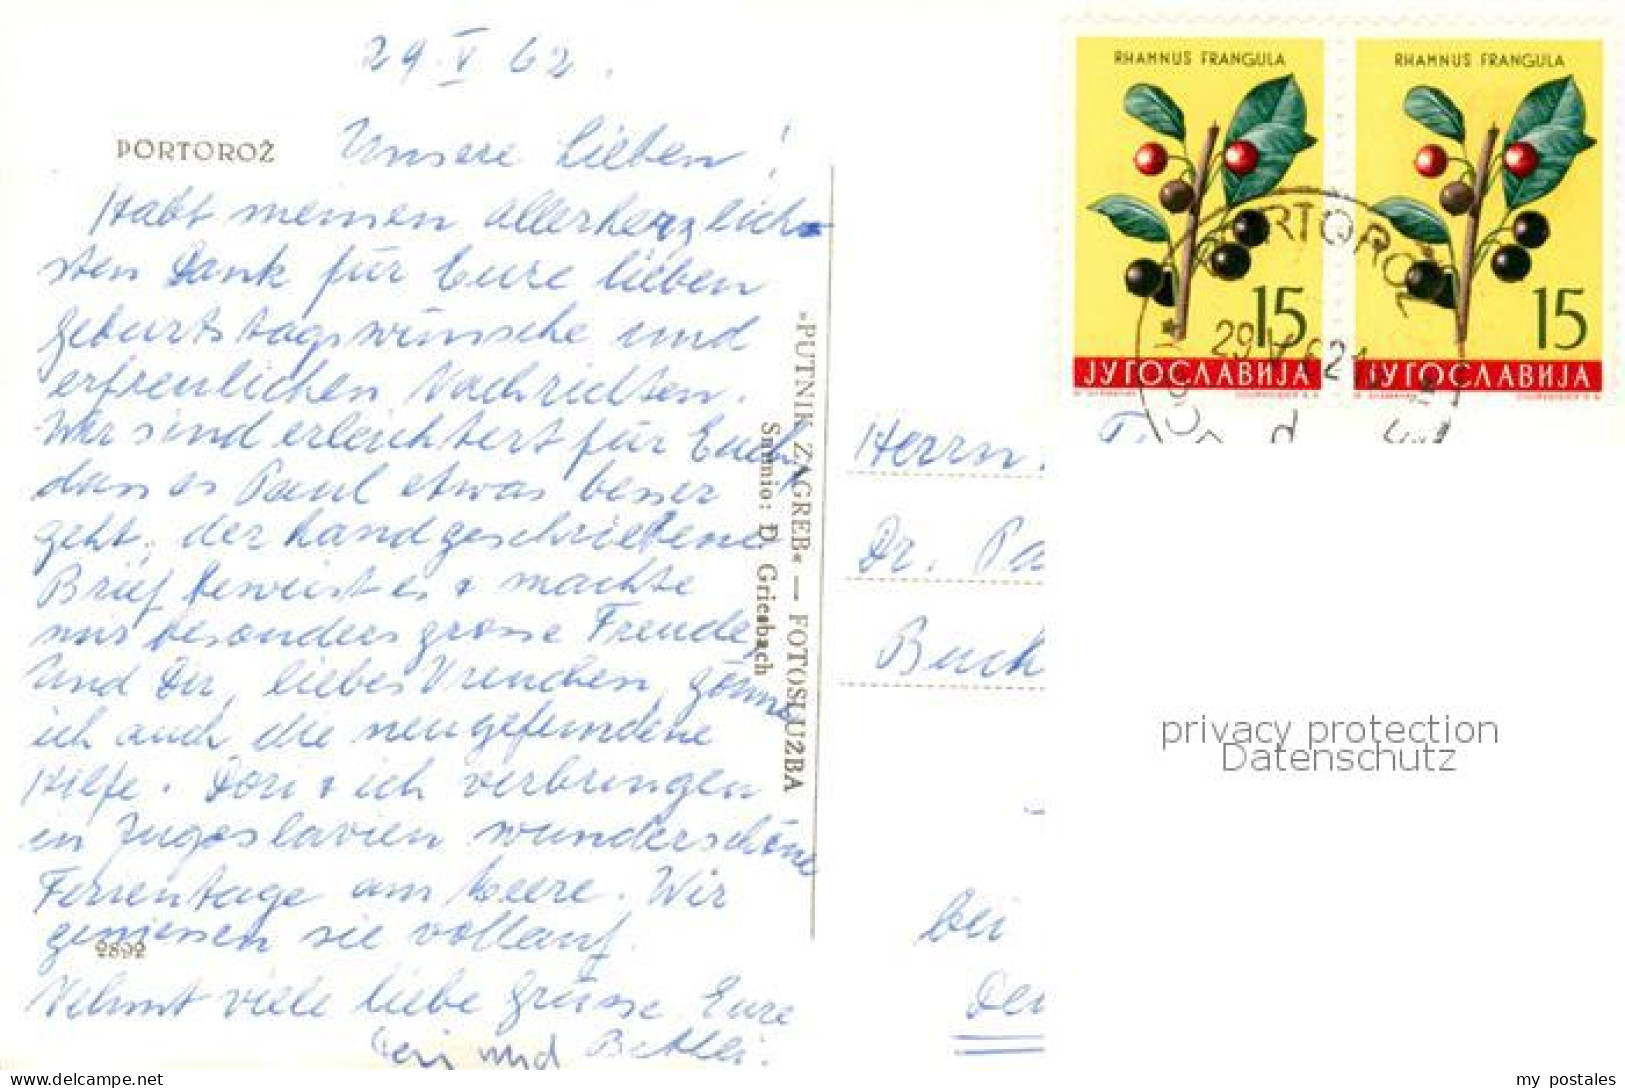 29 V 62.
PORTOROŽ
Unsere Lieben!
Habt meinen allerherzlich-
sten Dank für Eure lieben
Geburtstagswünsche und
erfreulichen Nachrichten.
Wir sind erleichtert für Euch,
dass es Paul etwas besser
geht, der handgeschriebene
Brief beweist es & machte
uns besonders grosse Freude,
Und Dir, liebes Vrenchen, gönne
ich auch die neugefundene
Hilfe. Dori & ich verbringen
in Jugoslavien wunderschöne
Ferientage am Meere. Wir
geniessen sie vollauf.
2892
Nehmt viele liebe Grüsse Eure
und Bethli.
»PUTNIK ZAGREB« — FOTOSLUŽBA
Snimio: Đ. Griesbach
RHAMNUS FRANGULA
15
ЈУГОСЛАВИЈА
RHAMNUS FRANGULA
15
ЈУГОСЛАВИЈА
PORTOROŽ
29 V 62
Herrn
Dr. Pa
Buch
bei
privacy protection
Datenschutz
my postales